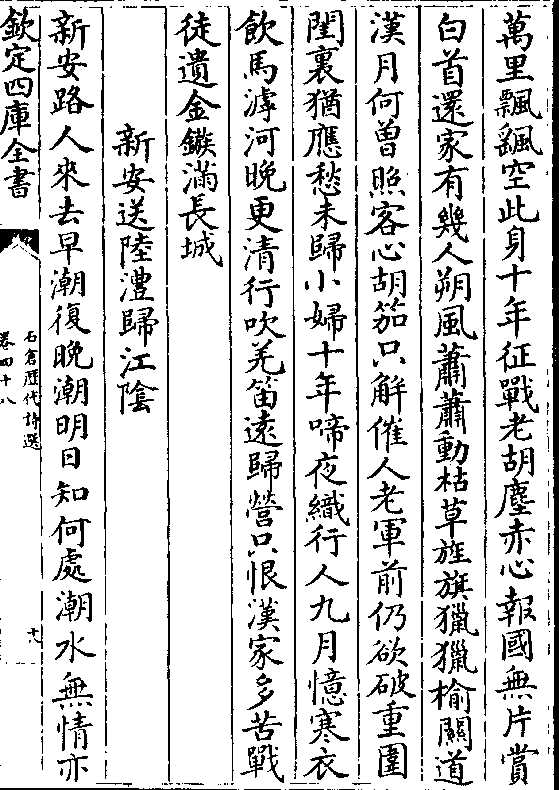 萬里飄飖空此身十年征戰老胡塵赤心報國無片賞
白首還家有幾人朔風蕭蕭動枯草旌旗獵獵榆關道
漢月何曾照客心胡笳只解催人老軍前仍欲破重圍
閨裏猶應愁未歸小婦十年啼夜織行人九月憶寒衣
飲馬滹河晚更清行吹羌笛遠歸營只恨漢家多苦戰
徒遺金鏃滿長城
新安送陸澧歸江陰
新安路人來去早潮復晚潮明日知何處潮水無情亦
欽定四庫全書
石倉歷代詩選
卷四十八
十八